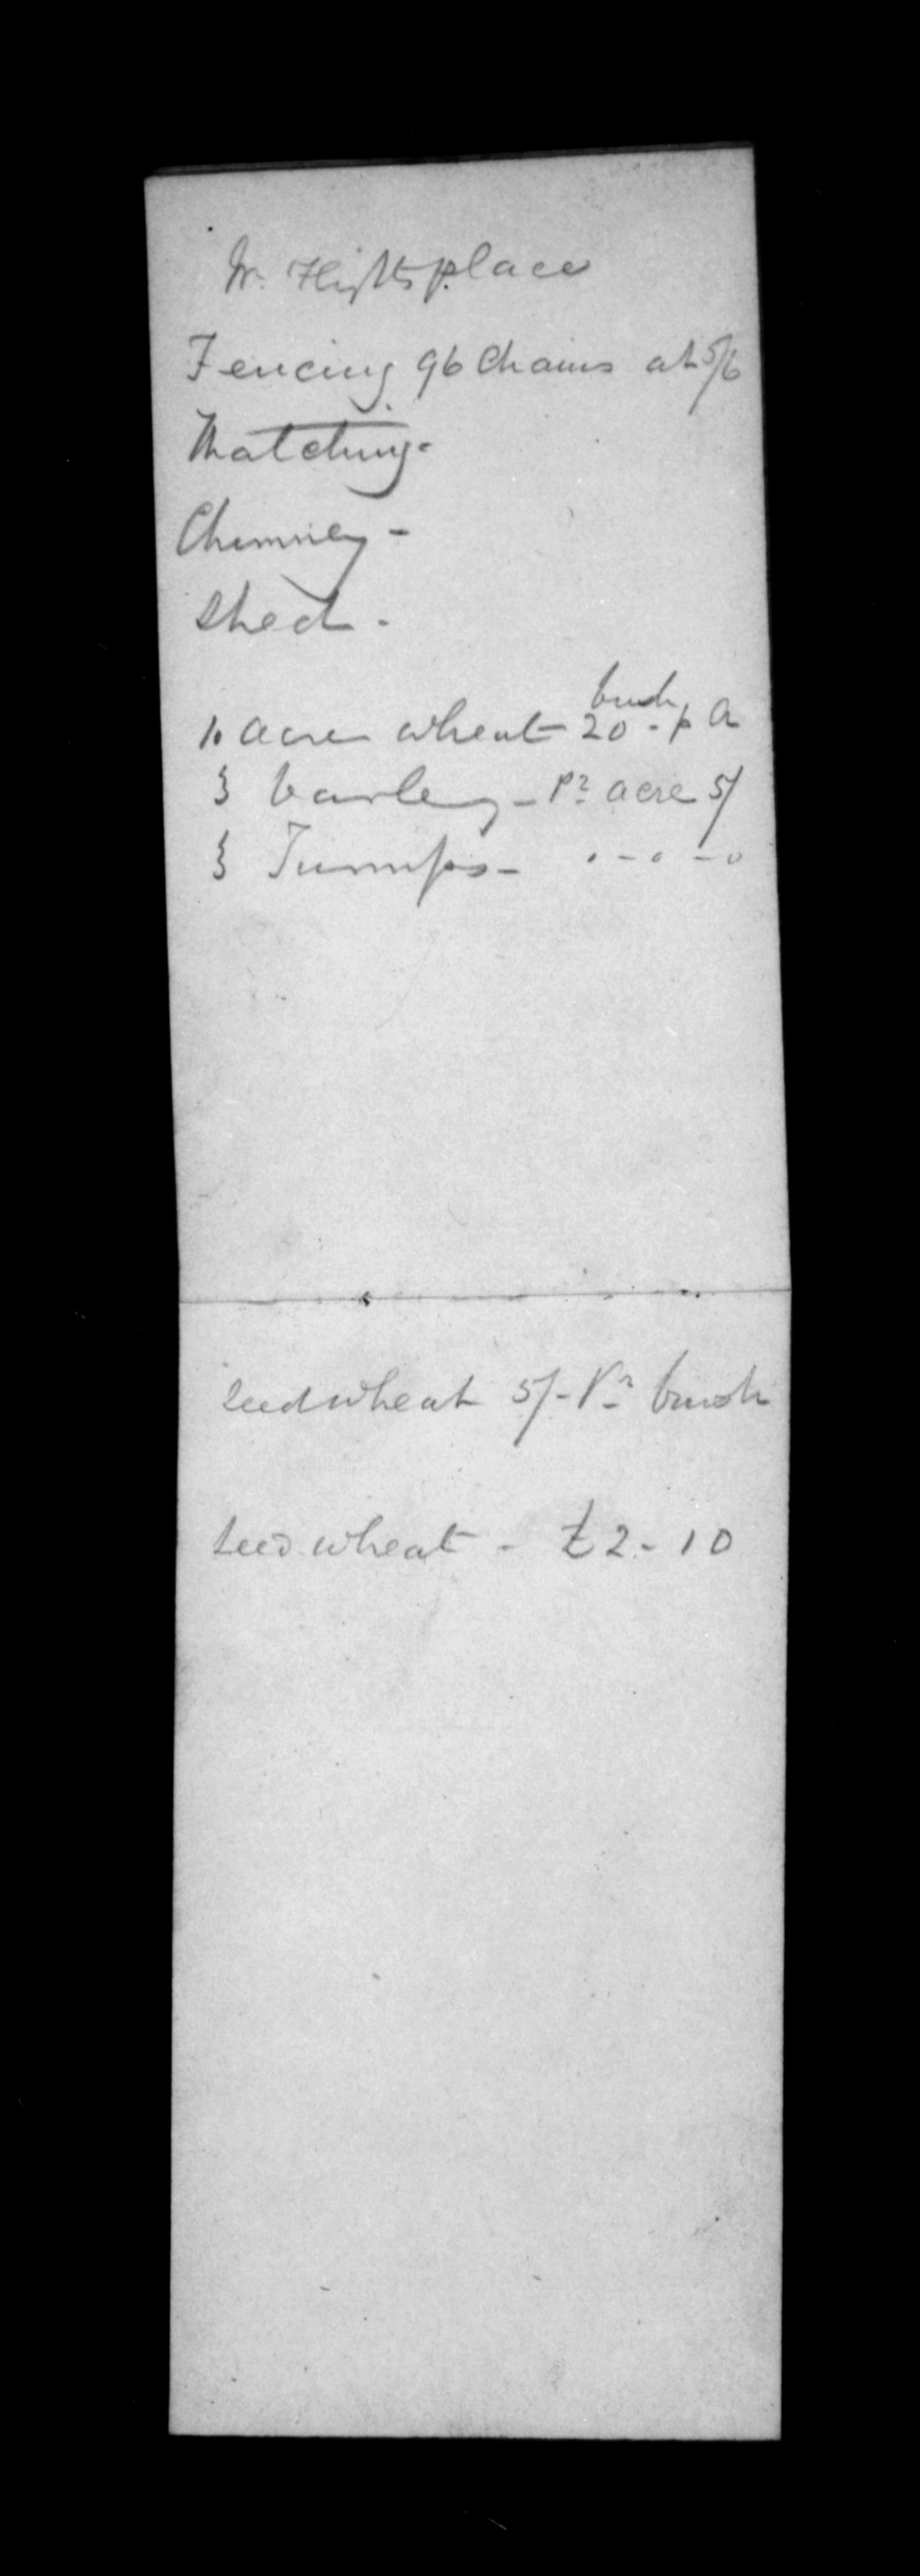 W. Flight's place
Fencing 96 Chains at 5/6
Thatching -
Chimney -
Shed -
10 acres wheat 20 bush - p A
3 barley - Pr acre 5/
3 Turnips - " - " - "
Seed wheat 5/- Pr bush
Seed wheat - £2 - 10